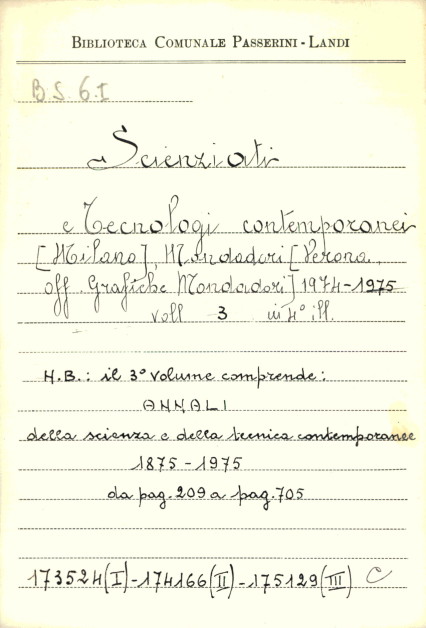 BIBLIOTECA COMUNALE PASSERINI - LANDI
B S 6. I
Scienziati
e Tecnologi contemporanei
[Milano], Mondadori [Verona,
off. Grafiche Mondadori] 1974-1975
voll 3 in 4° ill.
N.B.: il 3° volume comprende:
ANNALI
della scienza e della tecnica contemporanee
1875 - 1975
da pag. 209 a pag. 705
173524 (I) - 174166 (II) - 175129 (III) C